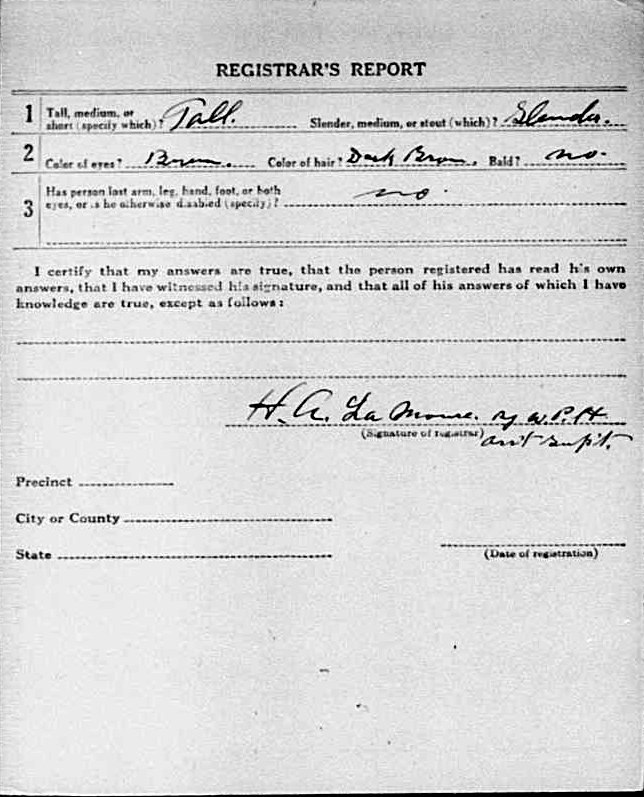 REGISTRAR'S REPORT
1 Tall, medium, or short (specify which)? Tall. Slender, medium, or stout (which)? Slender.
2 Color of eyes? Brown. Color of hair? Dark Brown. Bald? no.
3 Has person lost arm, leg, hand, foot, or both
eyes, or is he otherwise disabled (specify)? no.
I certify that my answers are true, that the person registered has read his own
answers, that I have witnessed his signature, and that all of his answers of which I have
knowledge are true, except as follows:
H. A. La Moure. By W. P. H.
(Signature of registrar) ass't Supt.
Precinct
City or County
State
(Date of registration)